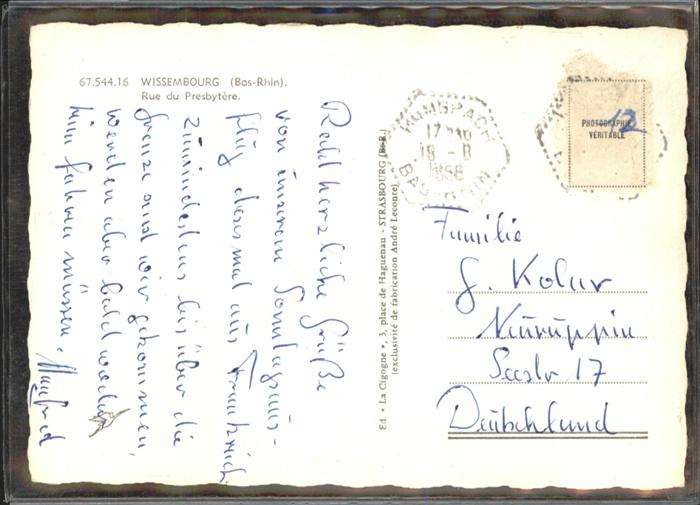 67.544.16 WISSEMBOURG (Bas-Rhin).
Rue du Presbytère.
Recht herzliche Grüße
von unserem Sonntagsaus-
flug diesmal aus Frankreich.
Zumindestens bis über die
Grenze sind wir gekommen,
werden aber bald wieder
heim fahren müssen.
Manfred
Ed. "La Cigogne", 3, place de Haguenau - STRASBOURG (B.-R.)
(exclusivité de fabrication André Leconte)
BAS-RHIN
17
18 - 8
PHOTOGRAPHIE
VÉRITABLE
12
Familie
G. Kolar
Neuruppin
Seestr 17
Deutschland